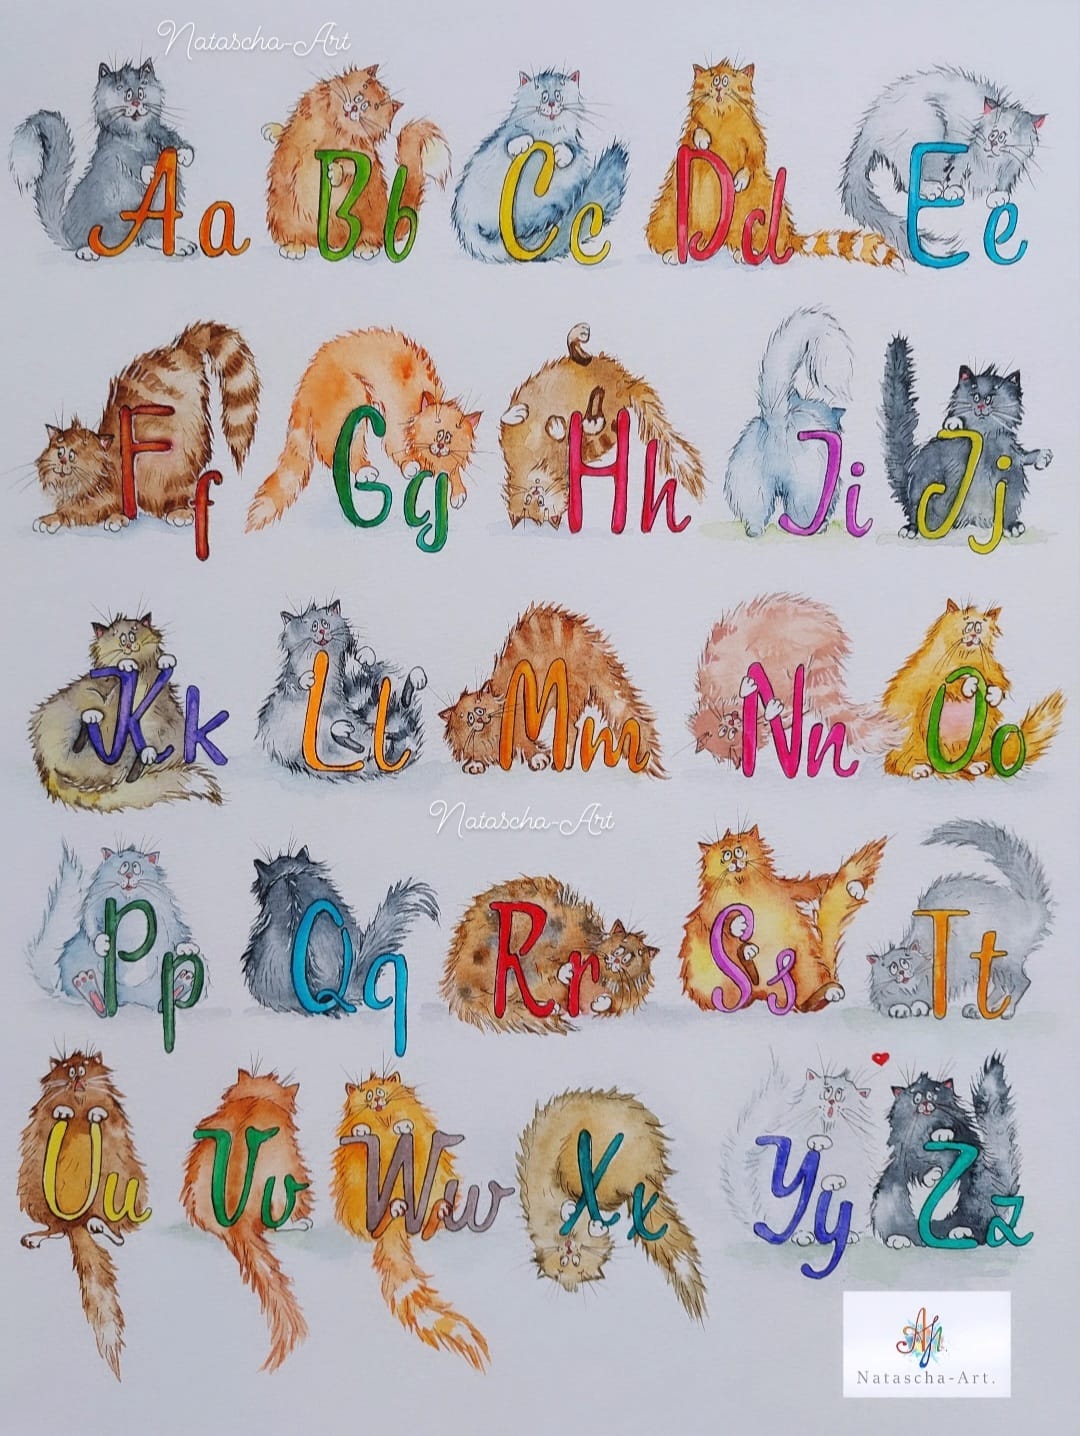 Natascha-Art
Aa Bb Cc Dd Ee
Ff Gg Hh Ii Jj
Kk Ll Mm Nn Oo
Natascha-Art
Pp Qq Rr Ss Tt
Uu Vv Ww Xx Yy Zz
AN.
Natascha-Art.